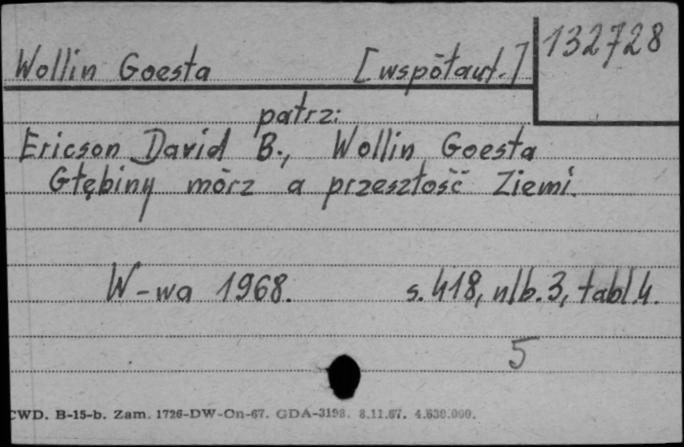 132728
Wollin Goesta [współaut.]
patrz:
Ericson David B., Wollin Goesta
Głębiny mórz a przeszłość Ziemi.
W-wa 1968. s. 418, nlb. 3, tabl. 4.
5
CWD. B-15-b. Zam. 1726-DW-On-67. GDA-3198. 8.11.67. 4.630.000.